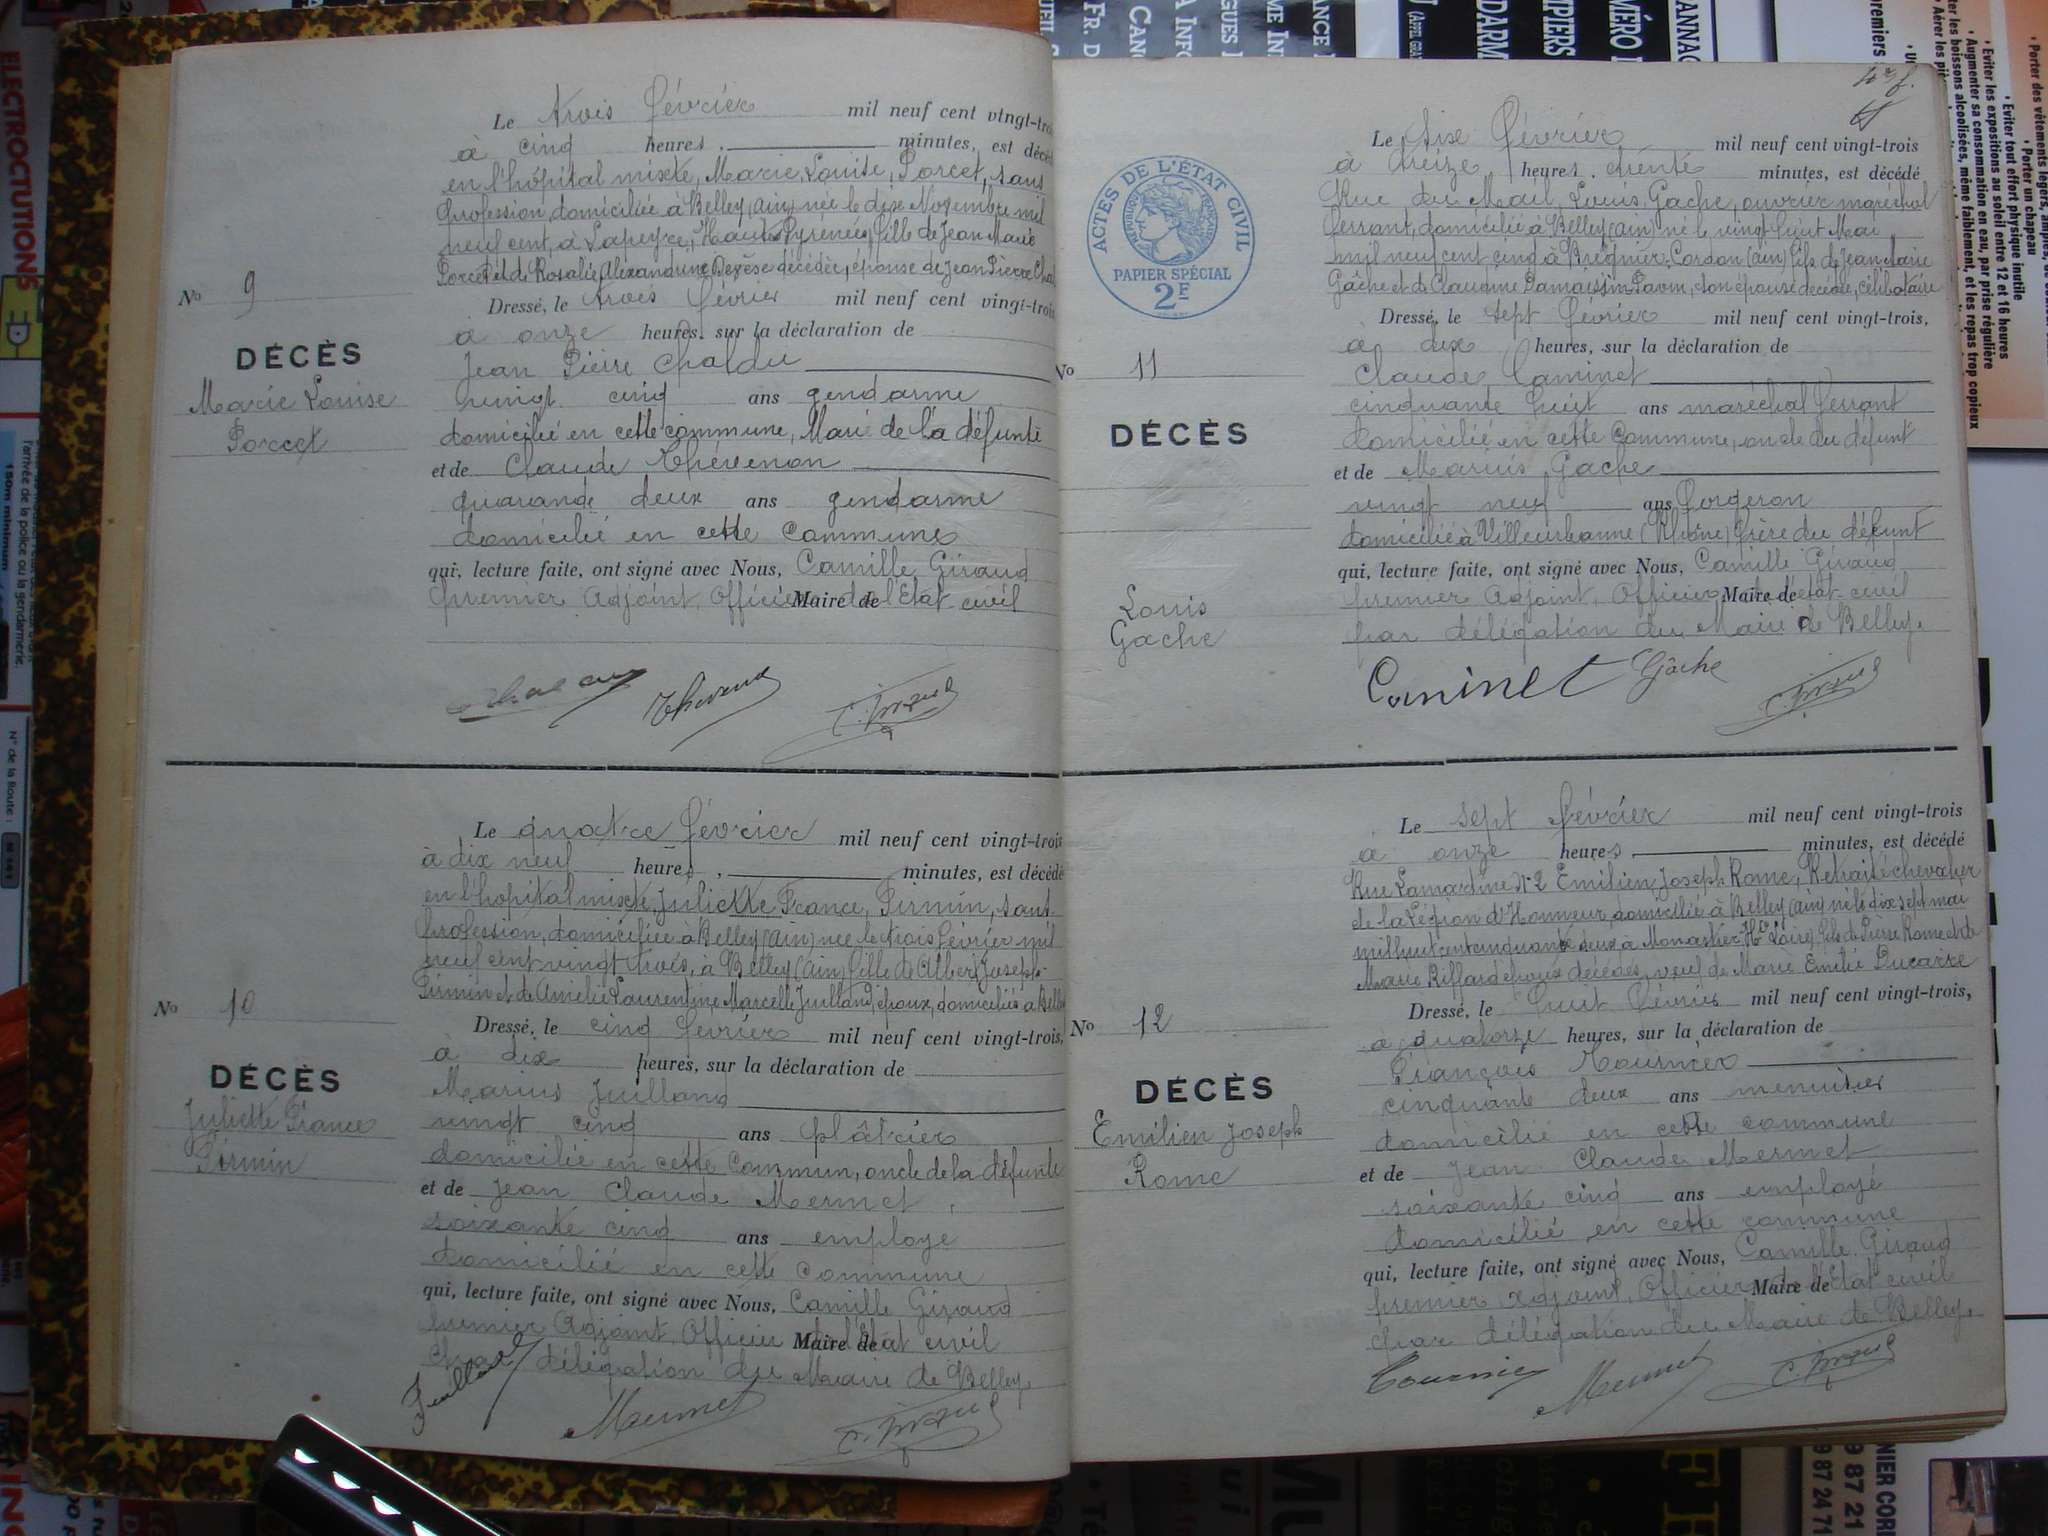 Le trois février mil neuf cent vingt-trois
à cinq heures, minutes, est décédé
en l'hôpital mixte, Marie, Louise, Porcet, sans
profession, domiciliée à Belley (ain) née le dix Novembre mil
neuf cent, à Lapeyre, Hautes Pyrénées, fille de Jean Marie
Porcet et de Rosalie Alexandrine décédée, épouse de Jean Pierre
No 9
Dressé, le trois février mil neuf cent vingt-trois
à onze heures. sur la déclaration de
DÉCÈS
Marie Louise
Porcet
Jean Pierre
vingt cinq ans gendarme
domicilié en cette commune, Mari de la défunte
et de Claude Thévenon
quarande deux ans gendarme
domicilié en cette commune
qui, lecture faite, ont signé avec Nous, Camille Giraud
premier Adjoint, Officier Maire de de l'Etat civil
Thevenon
C. Giraud
Le quatre février mil neuf cent vingt-trois
à dix neuf heures, minutes, est décédé
en l'hopital mixte, Juliette France, Pirmin, sans
profession, domiciliée à Belley (ain) née le trois février mil
neuf cent vingt trois, à Belley (ain) fille de Albert Joseph
Pirmin et de Amélie Laurentine Marcelle Juilland, époux, domiciliés à Belley
No 10
Dressé, le cinq février mil neuf cent vingt-trois,
a dix heures, sur la déclaration de
DÉCÈS
Juliette France
Pirmin
Marius Juilland
vingt cinq ans plâtrier
domicilié en cette Commun, oncle de la défunte
et de Jean Claude Mermet
soixante cinq ans employe
domicilié en cette commune
qui, lecture faite, ont signé avec Nous, Camille Giraud
premier Adjoint, Officier Maire de de l'Etat civil
par délégation du Maire de Belley.
Juilland
Mermet
C. Giraud
Le six février mil neuf cent vingt-trois
à treize heures, trente minutes, est décédé
Rue du Mail, Louis, Gache, ouvrier maréchal
ferrant, domicilié à Belley (ain) né le vingt huit Mai
mil neuf cent, cinq à Brégnier-Cordon (ain) fils de Jean Marie
Gâche et de Claudine son épouse décédée, célibataire
ACTES DE L'ÉTAT CIVIL
RÉPUBLIQUE FRANÇAISE
PAPIER SPÉCIAL
2F
Dressé, le sept février mil neuf cent vingt-trois,
à dix heures, sur la déclaration de
No 11
DÉCÈS
Louis
Gache
Claude Caminet
cinquante huit ans maréchal ferrant
domicilié en cette commune, oncle du défunt
et de Marius Gache
vingt neuf ans forgeron
domicilié à Villeurbanne (Rhône) frère du défunt
qui, lecture faite, ont signé avec Nous, Camille Giraud
premier Adjoint, Officier Maire de de l'état-civil
par délégation du Maire de Belley.
Caminet Gâche
C. Giraud
Le sept février mil neuf cent vingt-trois
à onze heures minutes, est décédé
Rue Lamartine n°2 Emilien, Joseph Rome, Retraité chevalier
de la Légion d'Honneur, domicilié à Belley (ain) né le dix sept mai
mil huit cent cinquante deux à Monastier Hte Loire), fils de Pierre Rome et de
Marie Riffard époux décédés, veuf de Marie Emilie Ducarre
No 12
Dressé, le huit février mil neuf cent vingt-trois,
a quatorze heures, sur la déclaration de
DÉCÈS
Emilien Joseph
Rome
François Tournier
cinquante deux ans menuisier
domicilié en cette commune
et de Jean Claude Mermet
soixante cinq ans employé
domicilié en cette commune
qui, lecture faite, ont signé avec Nous, Camille Giraud
premier adjoint, Officier Maire de de l'Etat civil
par délégation du Maire de Belley.
Tournier
Mermet
C. Giraud
ELECTROCTUTIONS
150m minimum
l'arrivée de la police ou la gendarmerie.
N° de la Route :
• Porter des vêtements légers, amples,
• Porter un chapeau
• Eviter tout effort physique inutile
• Eviter les expositions au soleil entre 12 et 16 heures
• Augmenter sa consommation en eau, par prise régulière